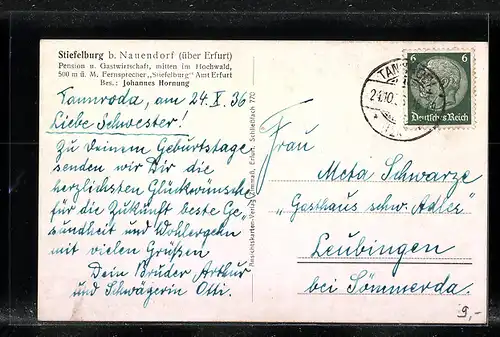 Stiefelburg b. Nauendorf (über Erfurt)
Pension u. Gastwirtschaft, mitten im Hochwald,
500 m ü. M. Fernsprecher „Stiefelburg" Amt Erfurt
Bes.: Johannes Hornung
Tannroda, am 24. X. 36
Liebe Schwester!
Zu Deinem Geburtstage
senden wir Dir die
herzlichsten Glückwünsche
für die Zukunft beste Ge-
sundheit und Wohlergehn
mit vielen Grüßen
Dein Bruder Arthur
und Schwägerin Otti.
Ansichtskarten-Verlag Erfurt, Schließfach 770
TANNRODA
24.10.
6 6
Deutsches Reich
Frau
Meta Schwarze
„Gasthaus schw. Adler"
Leubingen
bei Sömmerda.
9,-